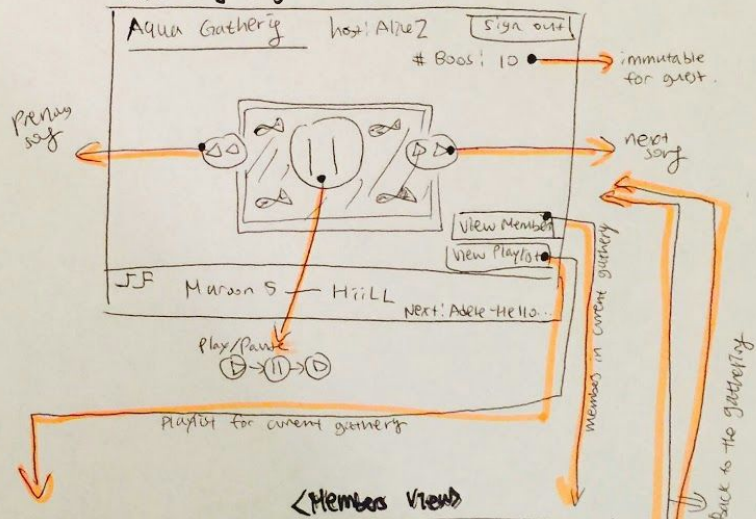 Aqua Gatherig host: Alice2 Sign out
# Boos: 10
immutable
for guest.
previous
song
next
song
View Member
View Playlist
Maroon 5 — HiiLL
Next: Adele - Hello...
Play/Pause
members in current gathery
Playlist for current gathery
Back to the gathering
<Members View>